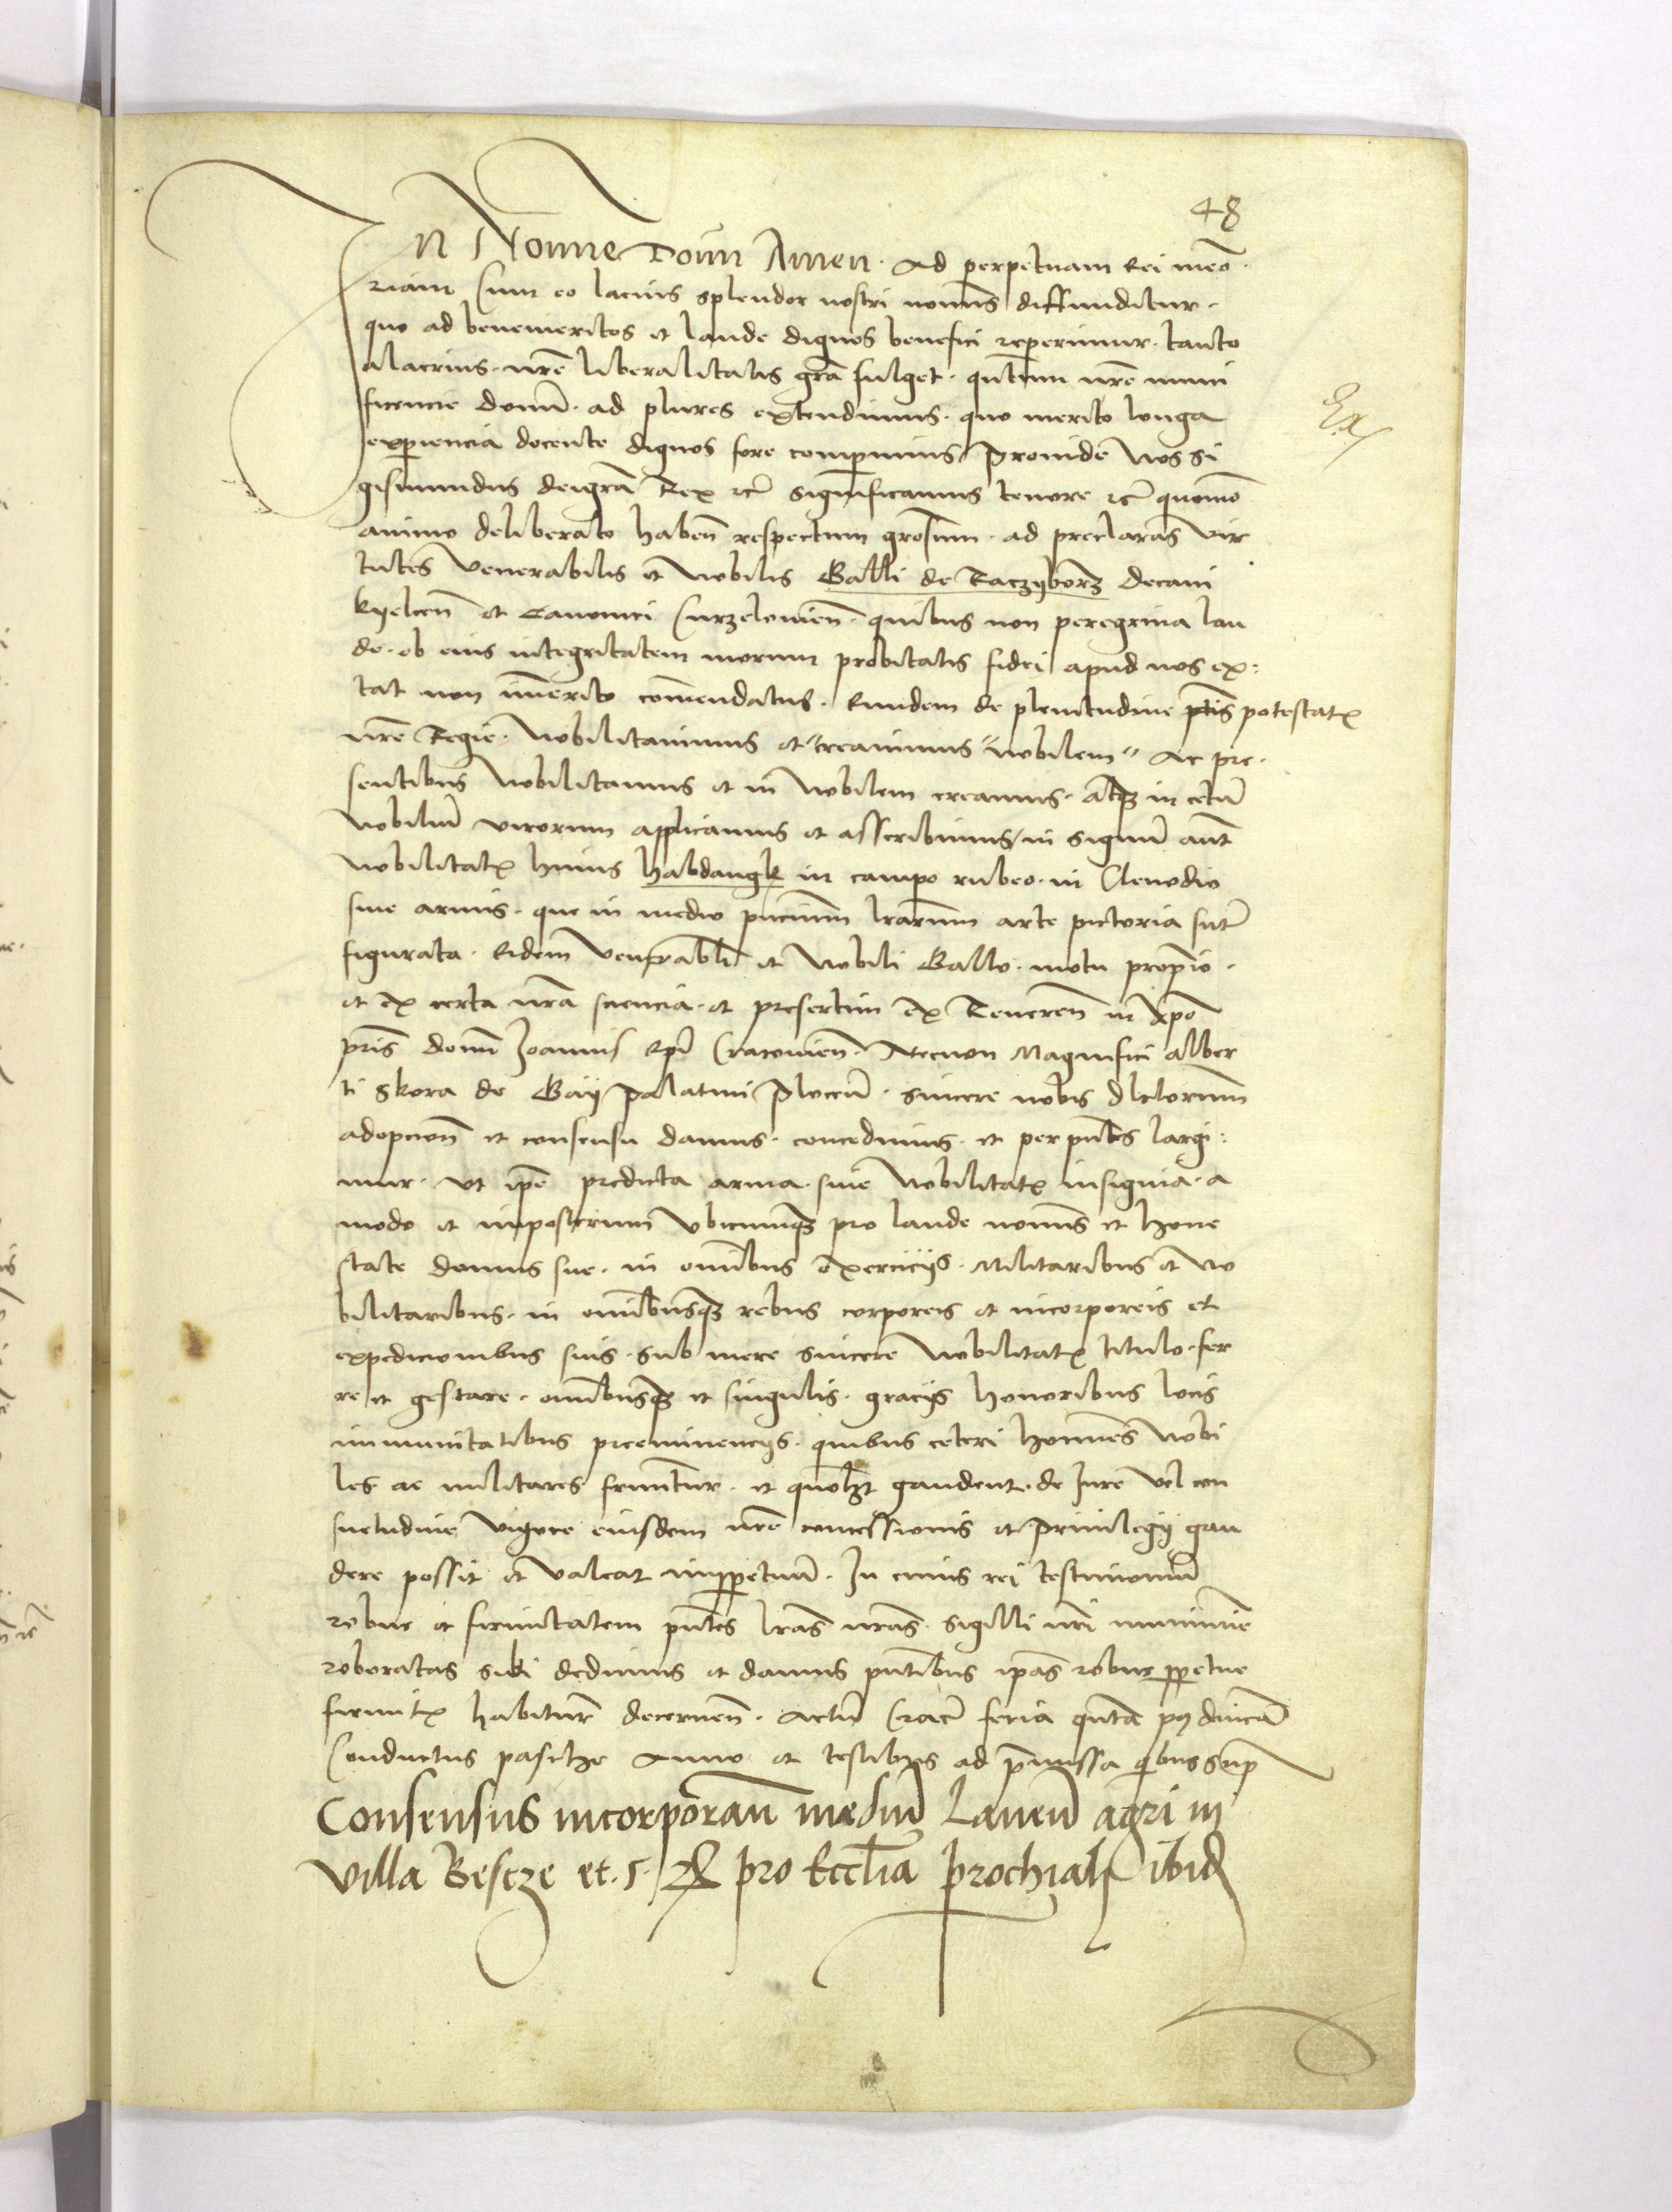 48
In Nomine Domini Amen. Ad perpetuam Rei memo-
riam Cum eo lacius splendor nostri nominis diffunditur.
quo ad benemeritos et laude dignos benefici reperimur. tanto
alacrius. nre liberalitatis gra fulget. qntum nre muni
ficencie donum. ad plures extendimus. quo merito longa
experiencia docente dignos fore comperimus Proinde Nos Si
gismundus deigra Rex etc significamus tenore etc quomodo
animo deliberato haben respectum grosum. ad preclaras vir
tutes Venerabilis et Nobilis Galli de Raczyborz decani
kyelcen et Canonici Curzelowien. quibus non peregrina lau
de. ob eius integritatem morum probitatis fidei apud nos ex:
tat non immerito commendatus. Eundem de plenitudine ptis potestatis
nre Regie. Nobilitavimus et "creavimus "nobilem" Ac pre-
sentibus Nobilitamus et in Nobilem creamus. atque in cetum
Nobilium virorum applicamus et asscribimus in signum aut
Nobilitatis huius habdangk in campo rubeo. in Clenodio
sive armis. que in medio pncium lrarum arte pictoria sunt
figurata. Eidem Venerabli et Nobili Gallo. motu proprio.
et ex certa nra sciencia. et presertim ex Reveren in Xpo
pris domini Joannis Epi Cracovien. Necnon Magnifici alber
ti Skora de Gay Palatini Plocen. sincere nobis dlctorum
adopcion et consensu damus. concedimus. et per pntes largi:
mur. Ut ipe predicta arma. sive Nobilitatis insignia. a
modo et imposterum Ubicumque pro laude nominis et hone
state domus sue. in omnibus exerciciis. Militaribus et No
bilitaribus. in omnibusque rebus corporeis et incorporeis et
expedicionibus suis. sub mere sincere Nobilitatis titulo. fer
re et gestare. omnibusque et singulis. graciis honoribus locis
immunitatibus preeminenciis. quibus ceteri homines Nobi
les ac militares fruuntur. et quolibet gaudent. de Jure Vel con
suetudine Vigore eiusdem nre concessionis et Privilegii gau
dere possit et Valeat inperpetuum. In cuius rei testimonium
robur et firmitatem pntes lras nras. sigilli nri munimine
roboratas sibi dedimus et damus pntibus ipas robur perpetue
firmitatis habituras decernen. Actum Crac feria qunta post dominicam
Conductus pasche Anno et testibus ad premissa quibus supra
Consensus incorporandi medium Laneum agri in
villa Bescze et. 5. pro Ecclia prochiali ibid